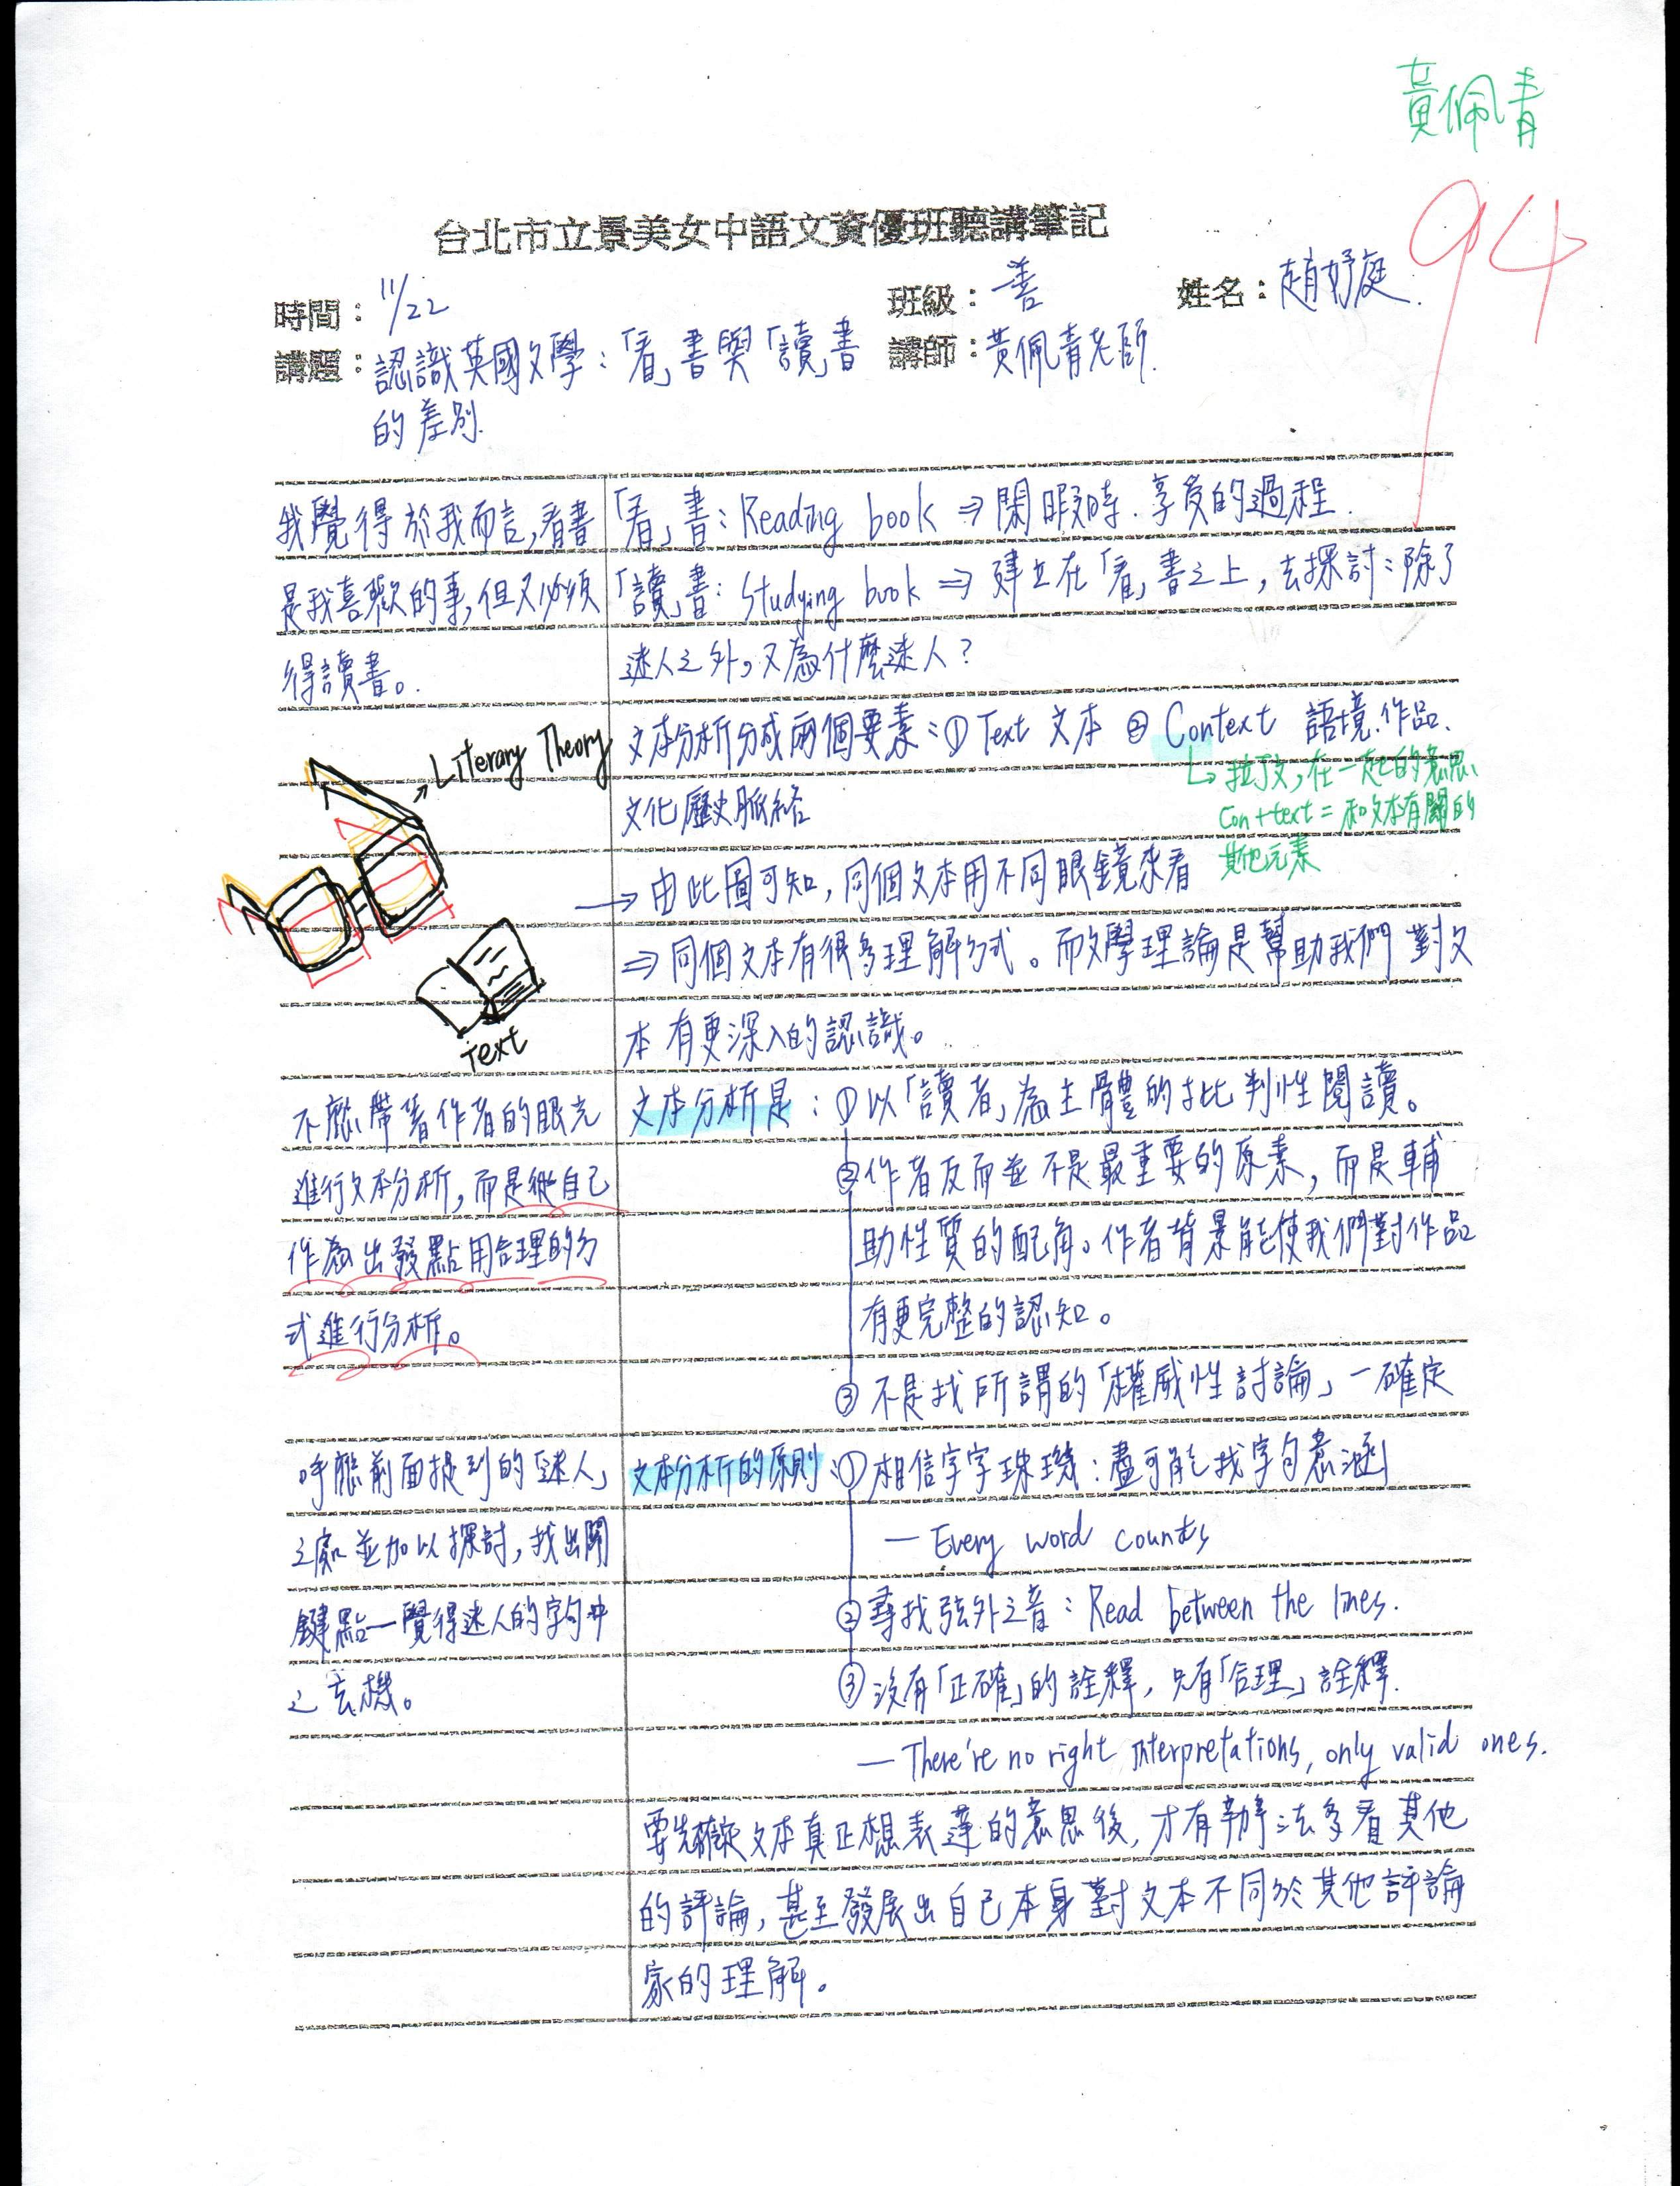 黃佩青
94
台北市立景美女中語文資優班聽講筆記
時間：11/22
班級：善
姓名：趙妤庭
講題：認識英國文學：「看」書與「讀」書
的差別
講師：黃佩青老師
我覺得於我而言，看書
是我喜歡的事，但又必須
得讀書。
Literary Theory
Text
不應帶著作者的眼光
進行文本分析，而是從自己
作為出發點用合理的方
式進行分析。
呼應前面提到的「迷人」
之處並加以探討，找出關
鍵點—覺得迷人的字句中
之玄機。
「看」書：Reading book ⇒ 閑暇時．享受的過程．
「讀」書：Studying book ⇒ 建立在「看」書之上，去探討：除了
迷人之外，又為什麼迷人？
文本分析分成兩個要素：① Text 文本 ② Context 語境．作品．
文化歷史脈絡
↳ 拉丁文，在一起的意思
Con+text = 和文本有關的
其他元素
→ 由此圖可知，同個文本用不同眼鏡來看
⇒ 同個文本有很多理解方式。而文學理論是幫助我們對文
本有更深入的認識。
文本分析是：①以「讀者」為主體的批判性閱讀。
②作者反而並不是最重要的原素，而是輔
助性質的配角。作者背景能使我們對作品
有更完整的認知。
③不是找所謂的「權威性討論」—確定
文本分析的原則：①相信字字珠璣：盡可能找字句意涵
— Every word counts
②尋找弦外之音：Read between the lines.
③沒有「正確」的詮釋，只有「合理」詮釋．
— There're no right interpretations, only valid ones.
要先確定文本真正想表達的意思後，才有辦法多看其他
的評論，甚至發展出自己本身對文本不同於其他評論
家的理解。